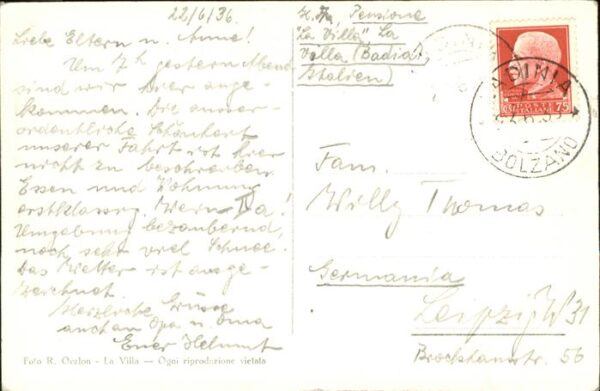 22/6/36.
Liebe Eltern u. Anne!
Um 7h gestern Abend
sind wir hier ange-
kommen. Die ausser-
ordentliche Schönheit
unserer Fahrt ist hier
nicht zu beschreiben.
Essen und Wohnung
erstklassig. Wein Ia!
Umgebung bezaubernd,
noch sehr viel Schnee.
Das Wetter ist ausge-
zeichnet.
Herzliche Grüsse
auch an Opa u. Oma
Euer Helmut
Foto R. Oralon - La Villa — Ogni riproduzione vietata
Pension
"La Villa", La
Villa (Badia)
Italien)
POSTE ITALIANE
75
BOLZANO
Fam.
Willy Thomas
Germania
Leipzig W 31
Brockhausstr. 56